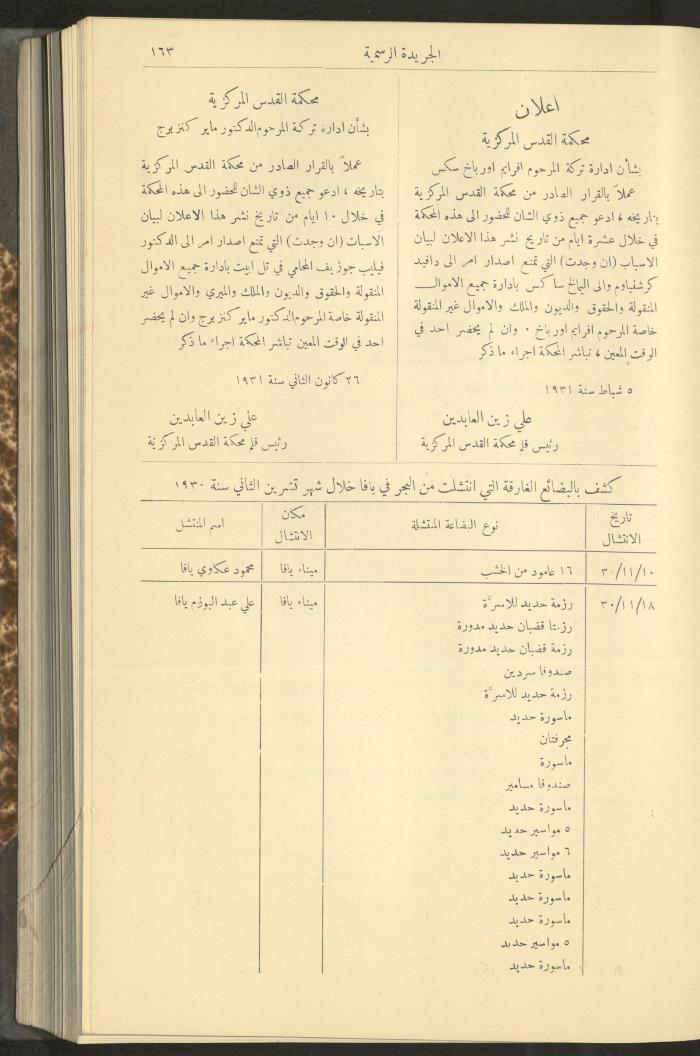 الجريدة الرسمية ١٦٣
اعلان
محكمة القدس المركزية
بشأن ادارة تركة المرحوم افرايم اورباخ سكس
عملاً بالقرار الصادر من محكمة القدس المركزية
بتاريخه ، ادعو جميع ذوي الشان للحضور الى هذه المحكمة
في خلال عشرة ايام من تاريخ نشر هذا الاعلان لبيان
الاسباب (ان وجدت) التي تمنع اصدار امر الى دافيد
كرشفباوم والى اليمالخ ساكس بادارة جميع الاموال
المنقولة والحقوق والديون والملك والاموال غير المنقولة
خاصة المرحوم افرايم اورباخ . وان لم يحضر احد في
الوقت المعين ، تباشر المحكمة اجراء ما ذكر
٥ شباط سنة ١٩٣١
علي زين العابدين
رئيس قلم محكمة القدس المركزية
محكمة القدس المركزية
بشأن ادارة تركة المرحوم الدكتور ماير كنزبرج
عملاً بالقرار الصادر من محكمة القدس المركزية
بتاريخه ، ادعو جميع ذوي الشان للحضور الى هذه المحكمة
في خلال ١٠ ايام من تاريخ نشر هذا الاعلان لبيان
الاسبات (ان وجدت) التي تمنع اصدار امر الى الدكتور
فيليب جوزيف المحامي في تل ابيب بادارة جميع الاموال
المنقولة والحقوق والديون والملك والميري والاموال غير
المنقولة خاصة المرحوم الدكتور ماير كنزبرج وان لم يحضر
احد في الوقت المعين تباشر المحكمة اجراء ما ذكر
٢٦ كانون الثاني سنة ١٩٣١
علي زين العابدين
رئيس قلم محكمة القدس المركزية
كشف بالبضائع الغارقة التي انتشلت من البحر في يافا خلال شهر تشرين الثاني سنة ١٩٣٠
تاريخ الانتشال نوع البضاعة المنتشلة مكان الانتشال اسم المنتشل
٣٠/١١/١٠ ١٦ عامود من الخشب ميناء يافا محمود عكاوي يافا
٣٠/١١/١٨ رزمة حديد للاسرّة ميناء يافا علي عبد البوزم يافا
رزمتا قضبان حديد مدورة
رزمة قضبان حديد مدورة
صندوقا سردين
رزمة حديد للاسرّة
ماسورة حديد
مجرفتان
ماسورة
صندوقا مسامير
ماسورة حديد
٥ مواسير حديد
٦ مواسير حديد
ماسورة حديد
ماسورة حديد
ماسورة حديد
٥ مواسير حديد
ماسورة حديد